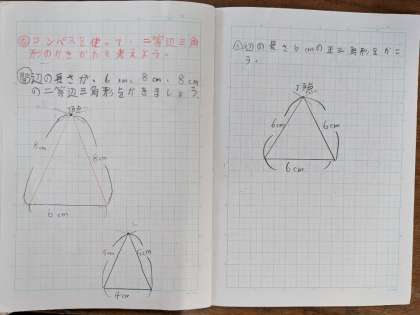 コンパスを使って、二等辺三角
形のかきかたを考えよう。
問 辺の長さが、6cm、8cm、8cm
の二等辺三角形をかきましょう。
頂点
8cm
8cm
6cm
4cm
辺の長さ6cmの正三角形をかこ
う。
頂点
6cm
6cm
6cm